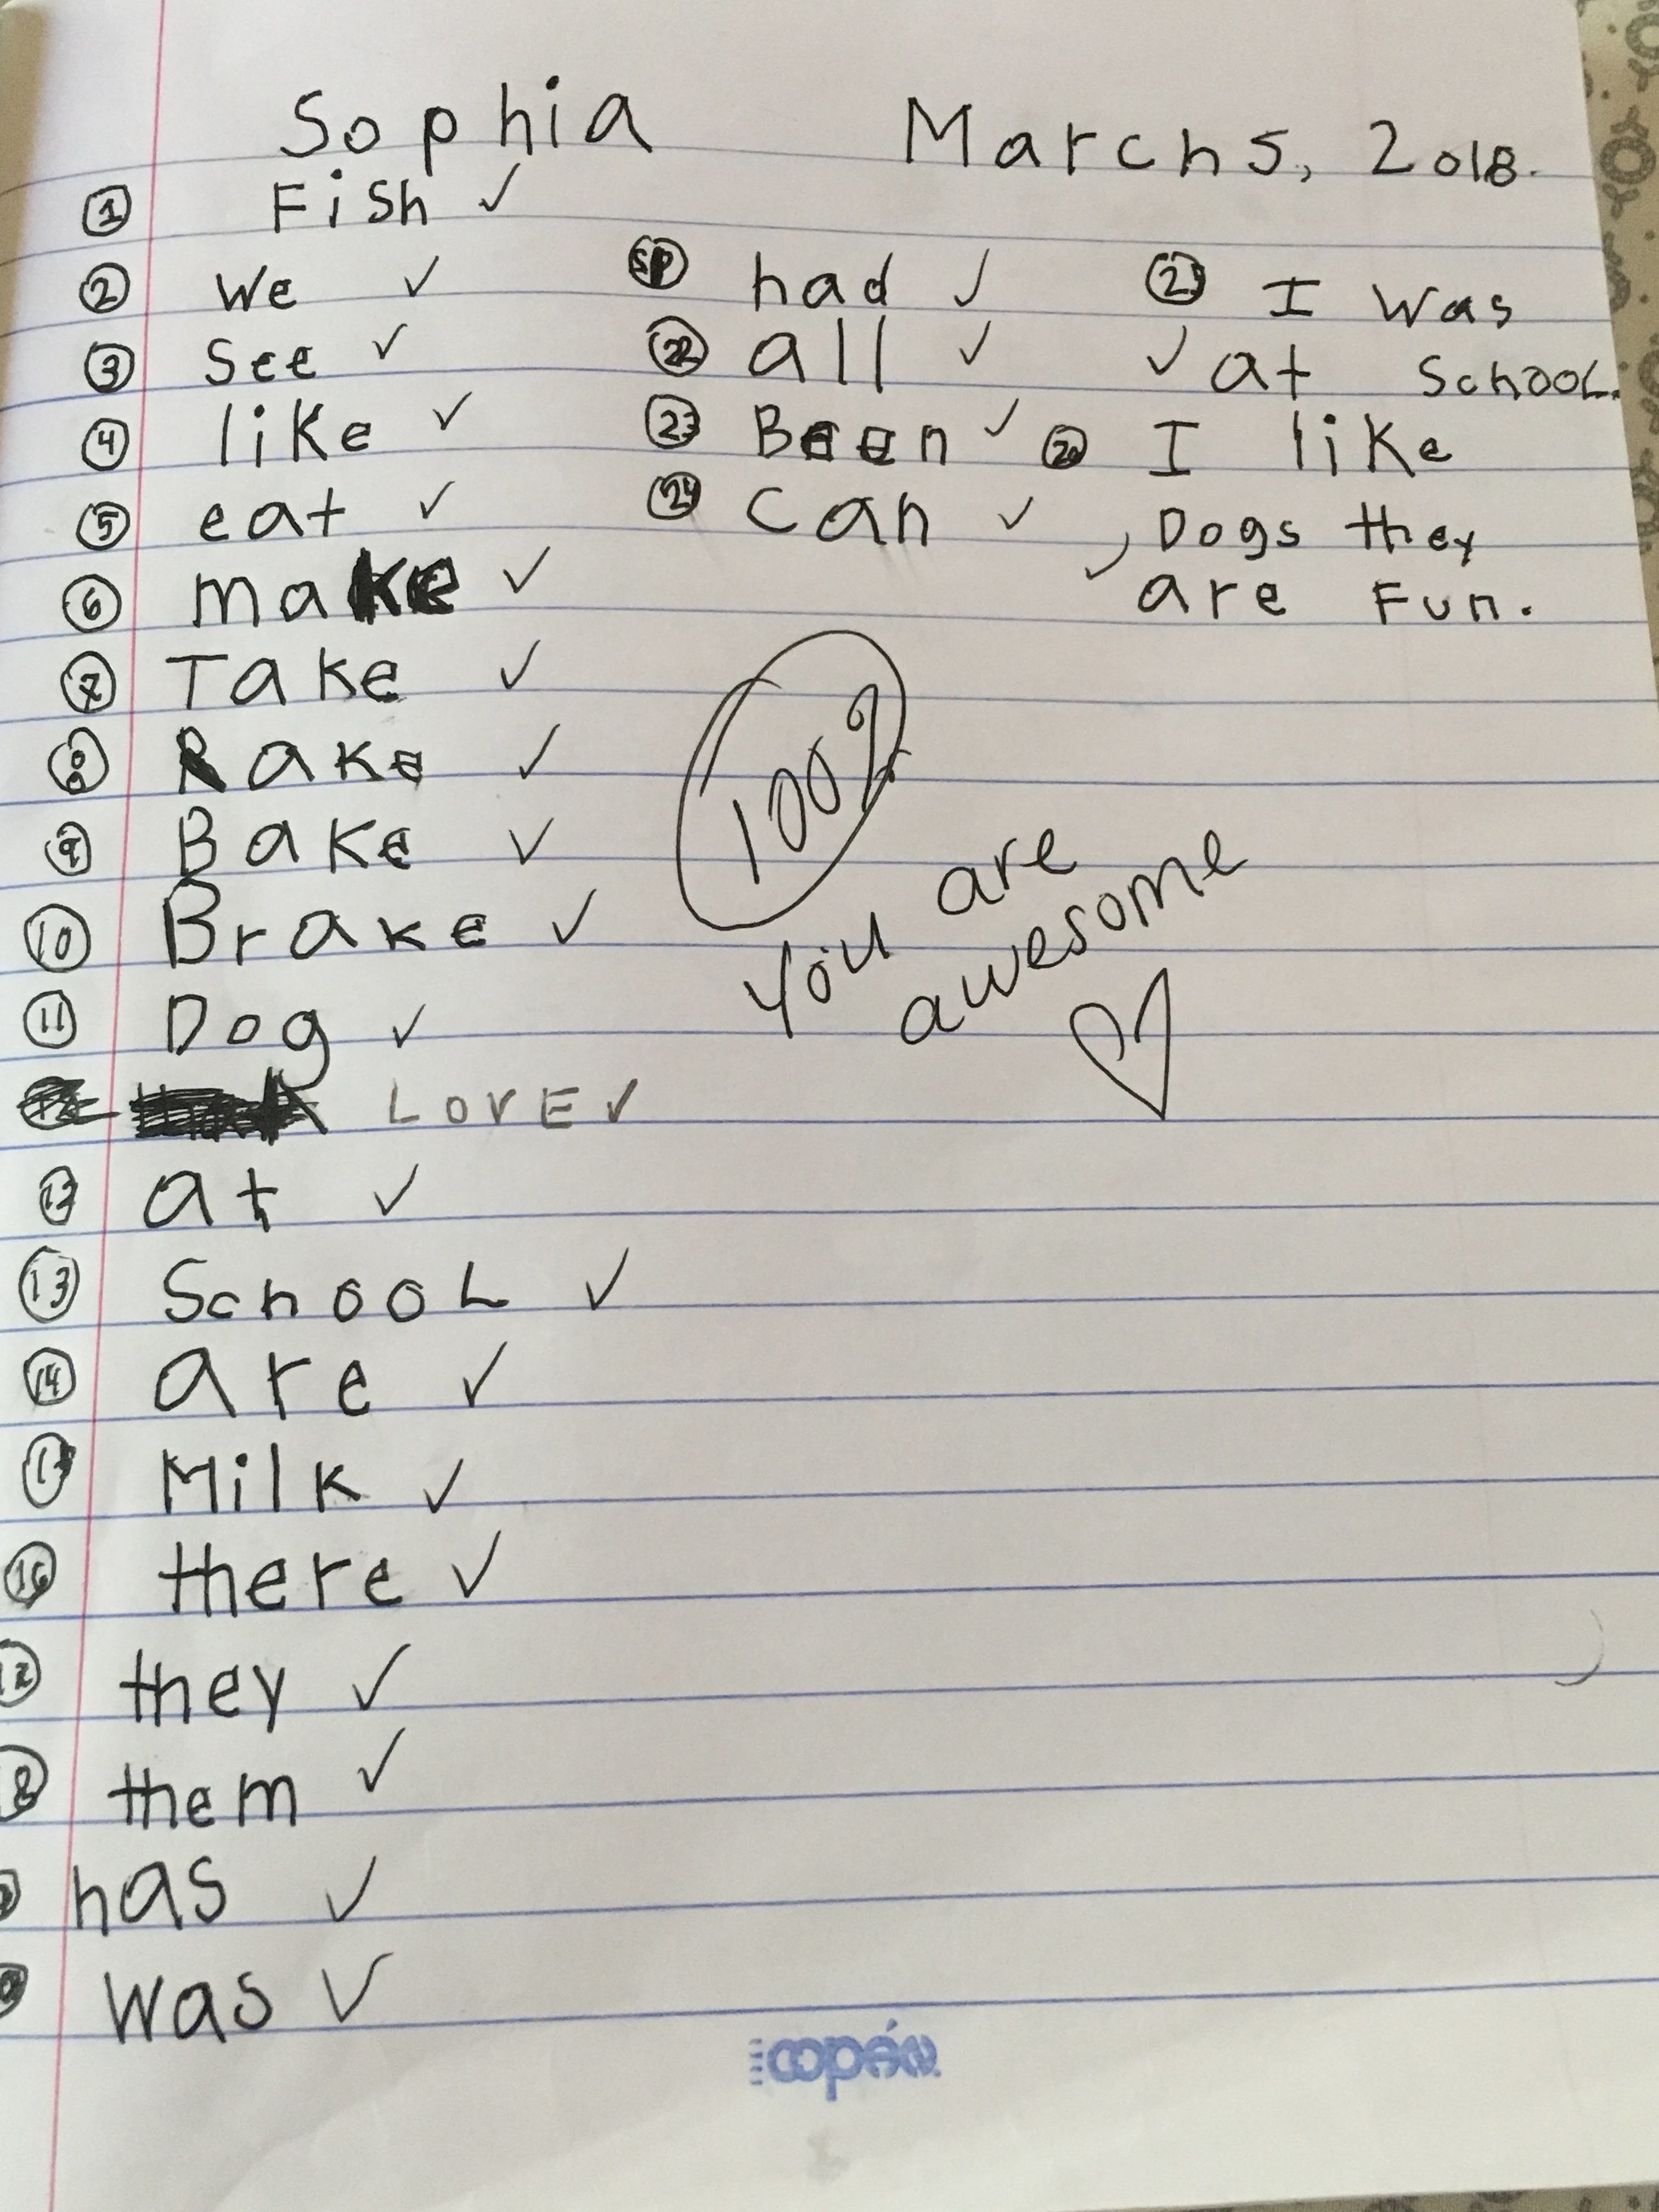 Sophia March 5, 2018.
1 Fish ✓
2 We ✓
3 See ✓
4 like ✓
5 eat ✓
6 make ✓
7 Take ✓
8 Rake ✓
9 Bake ✓
10 Brake ✓
11 Dog ✓
LOVE ✓
at ✓
13 SchooL ✓
14 are ✓
Milk ✓
16 there ✓
they ✓
them ✓
has ✓
was ✓
had ✓
22 all ✓
23 Been ✓
24 can ✓
25 I was
✓ at SchooL.
I like
Dogs they
✓ are Fun.
100%
You are
awesome
♡